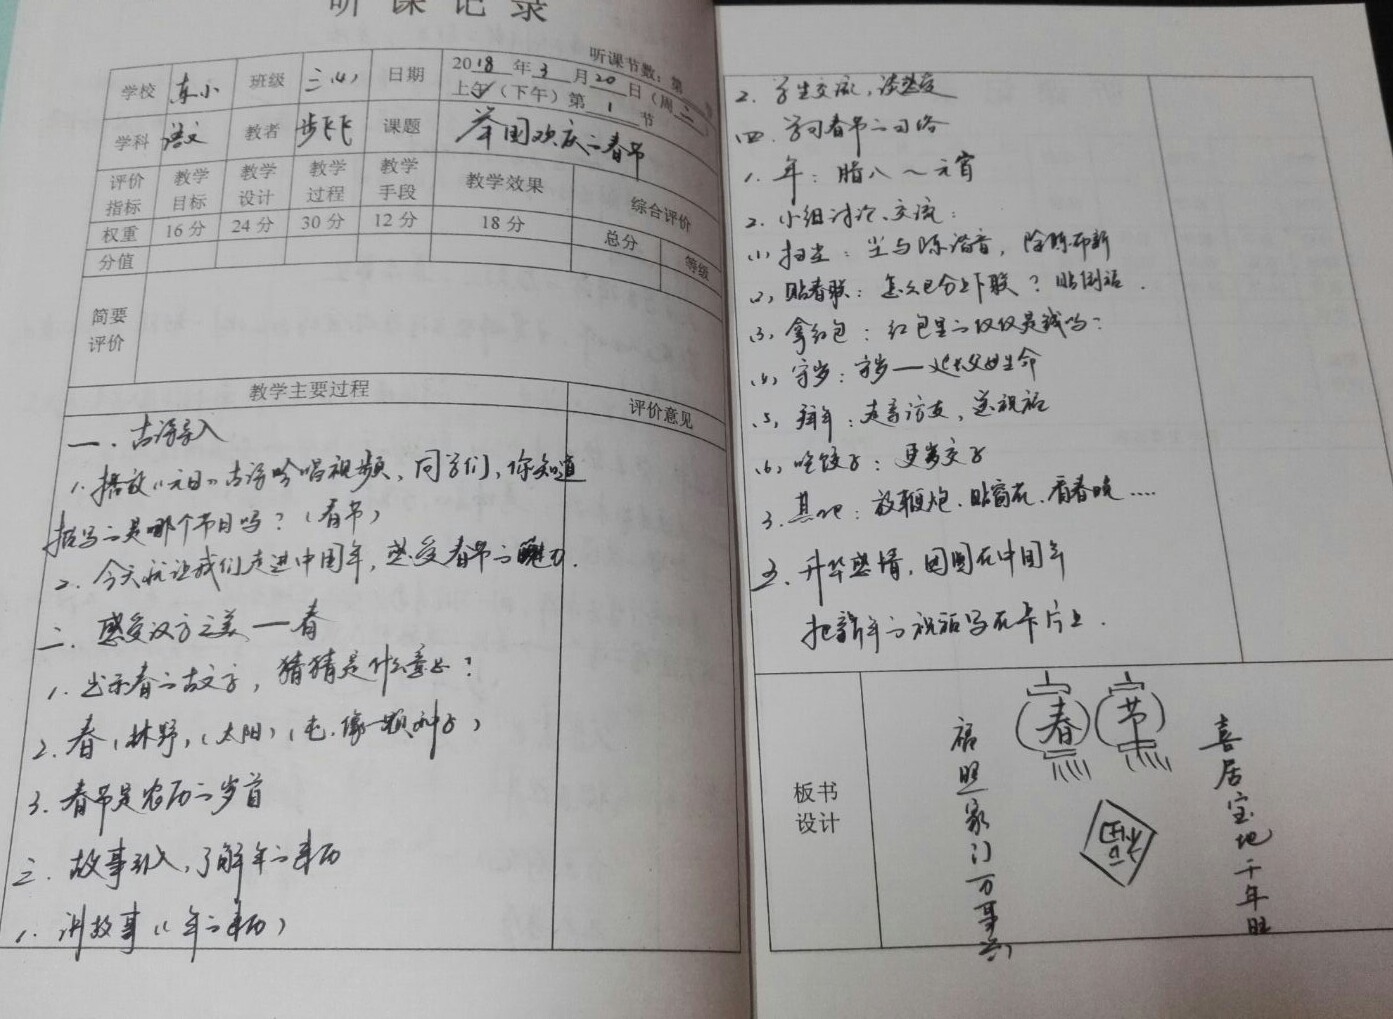 听课记录
听课节数：第
学校 东小 班级 三(4) 日期 2018年3月20日（周二）
上午（下午）第1节
学科 语文 教者 步飞飞 课题 举国欢庆的春节
评价指标 教学目标 教学设计 教学过程 教学手段 教学效果 综合评价
权重 16分 24分 30分 12分 18分 总分 等级
分值
简要评价
教学主要过程 评价意见
一．古诗导入
1. 播放《元日》古诗吟唱视频，同学们，你知道
描写的是哪个节日吗？（春节）
2. 今天就让我们走进中国年，感受春节的魅力．
二、感受汉字之美——春
1. 出示春的古文字，猜猜是什么意思？
2. 春（林野）（太阳）（屯．像一颗种子）
3. 春节是农历的岁首
三．故事引入，了解年的来历
1. 讲故事《年的来历》
2. 学生交流，谈感受
四．学习春节的习俗
1. 年：腊八～元宵
2. 小组讨论、交流：
(1) 扫尘：尘与陈谐音，除陈布新
(2) 贴春联：怎么区分上下联？贴倒福．
(3) 拿红包：红包里的仅仅是钱吗？
(4) 守岁：守岁——延长父母生命
(5) 拜年：走亲访友，送祝福
(6) 吃饺子：更岁交子
3. 其他：放鞭炮．贴窗花．看春晚....
五．升华感情，团圆在中国年
把新年的祝福写在卡片上．
板书设计
春 节
福照家门万事兴
福
喜居宝地千年旺